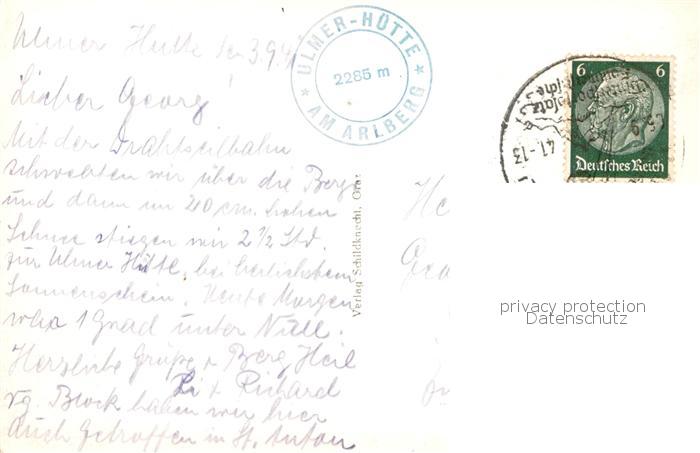 Ulmer Hütte den 3.9.41
ULMER-HÜTTE
2285 m
AM ARLBERG
6 6
Deutsches Reich
41.-13
Lieber Georg!
Mit der Drahtseilbahn
schwebten wir über die Berge
und dann im 20 cm. hohen
Schnee stiegen wir 2 ½ Std.
zur Ulmer Hütte, bei herlichstem
Sonnenschein. Heute Morgen
1 Grad unter Null.
Herzliche Grüße + Berg Heil
+ Richard
Vg. Block haben wir hier
auch Getroffen in St. Anton
Verlag Schildknecht, Graz
privacy protection
Datenschutz